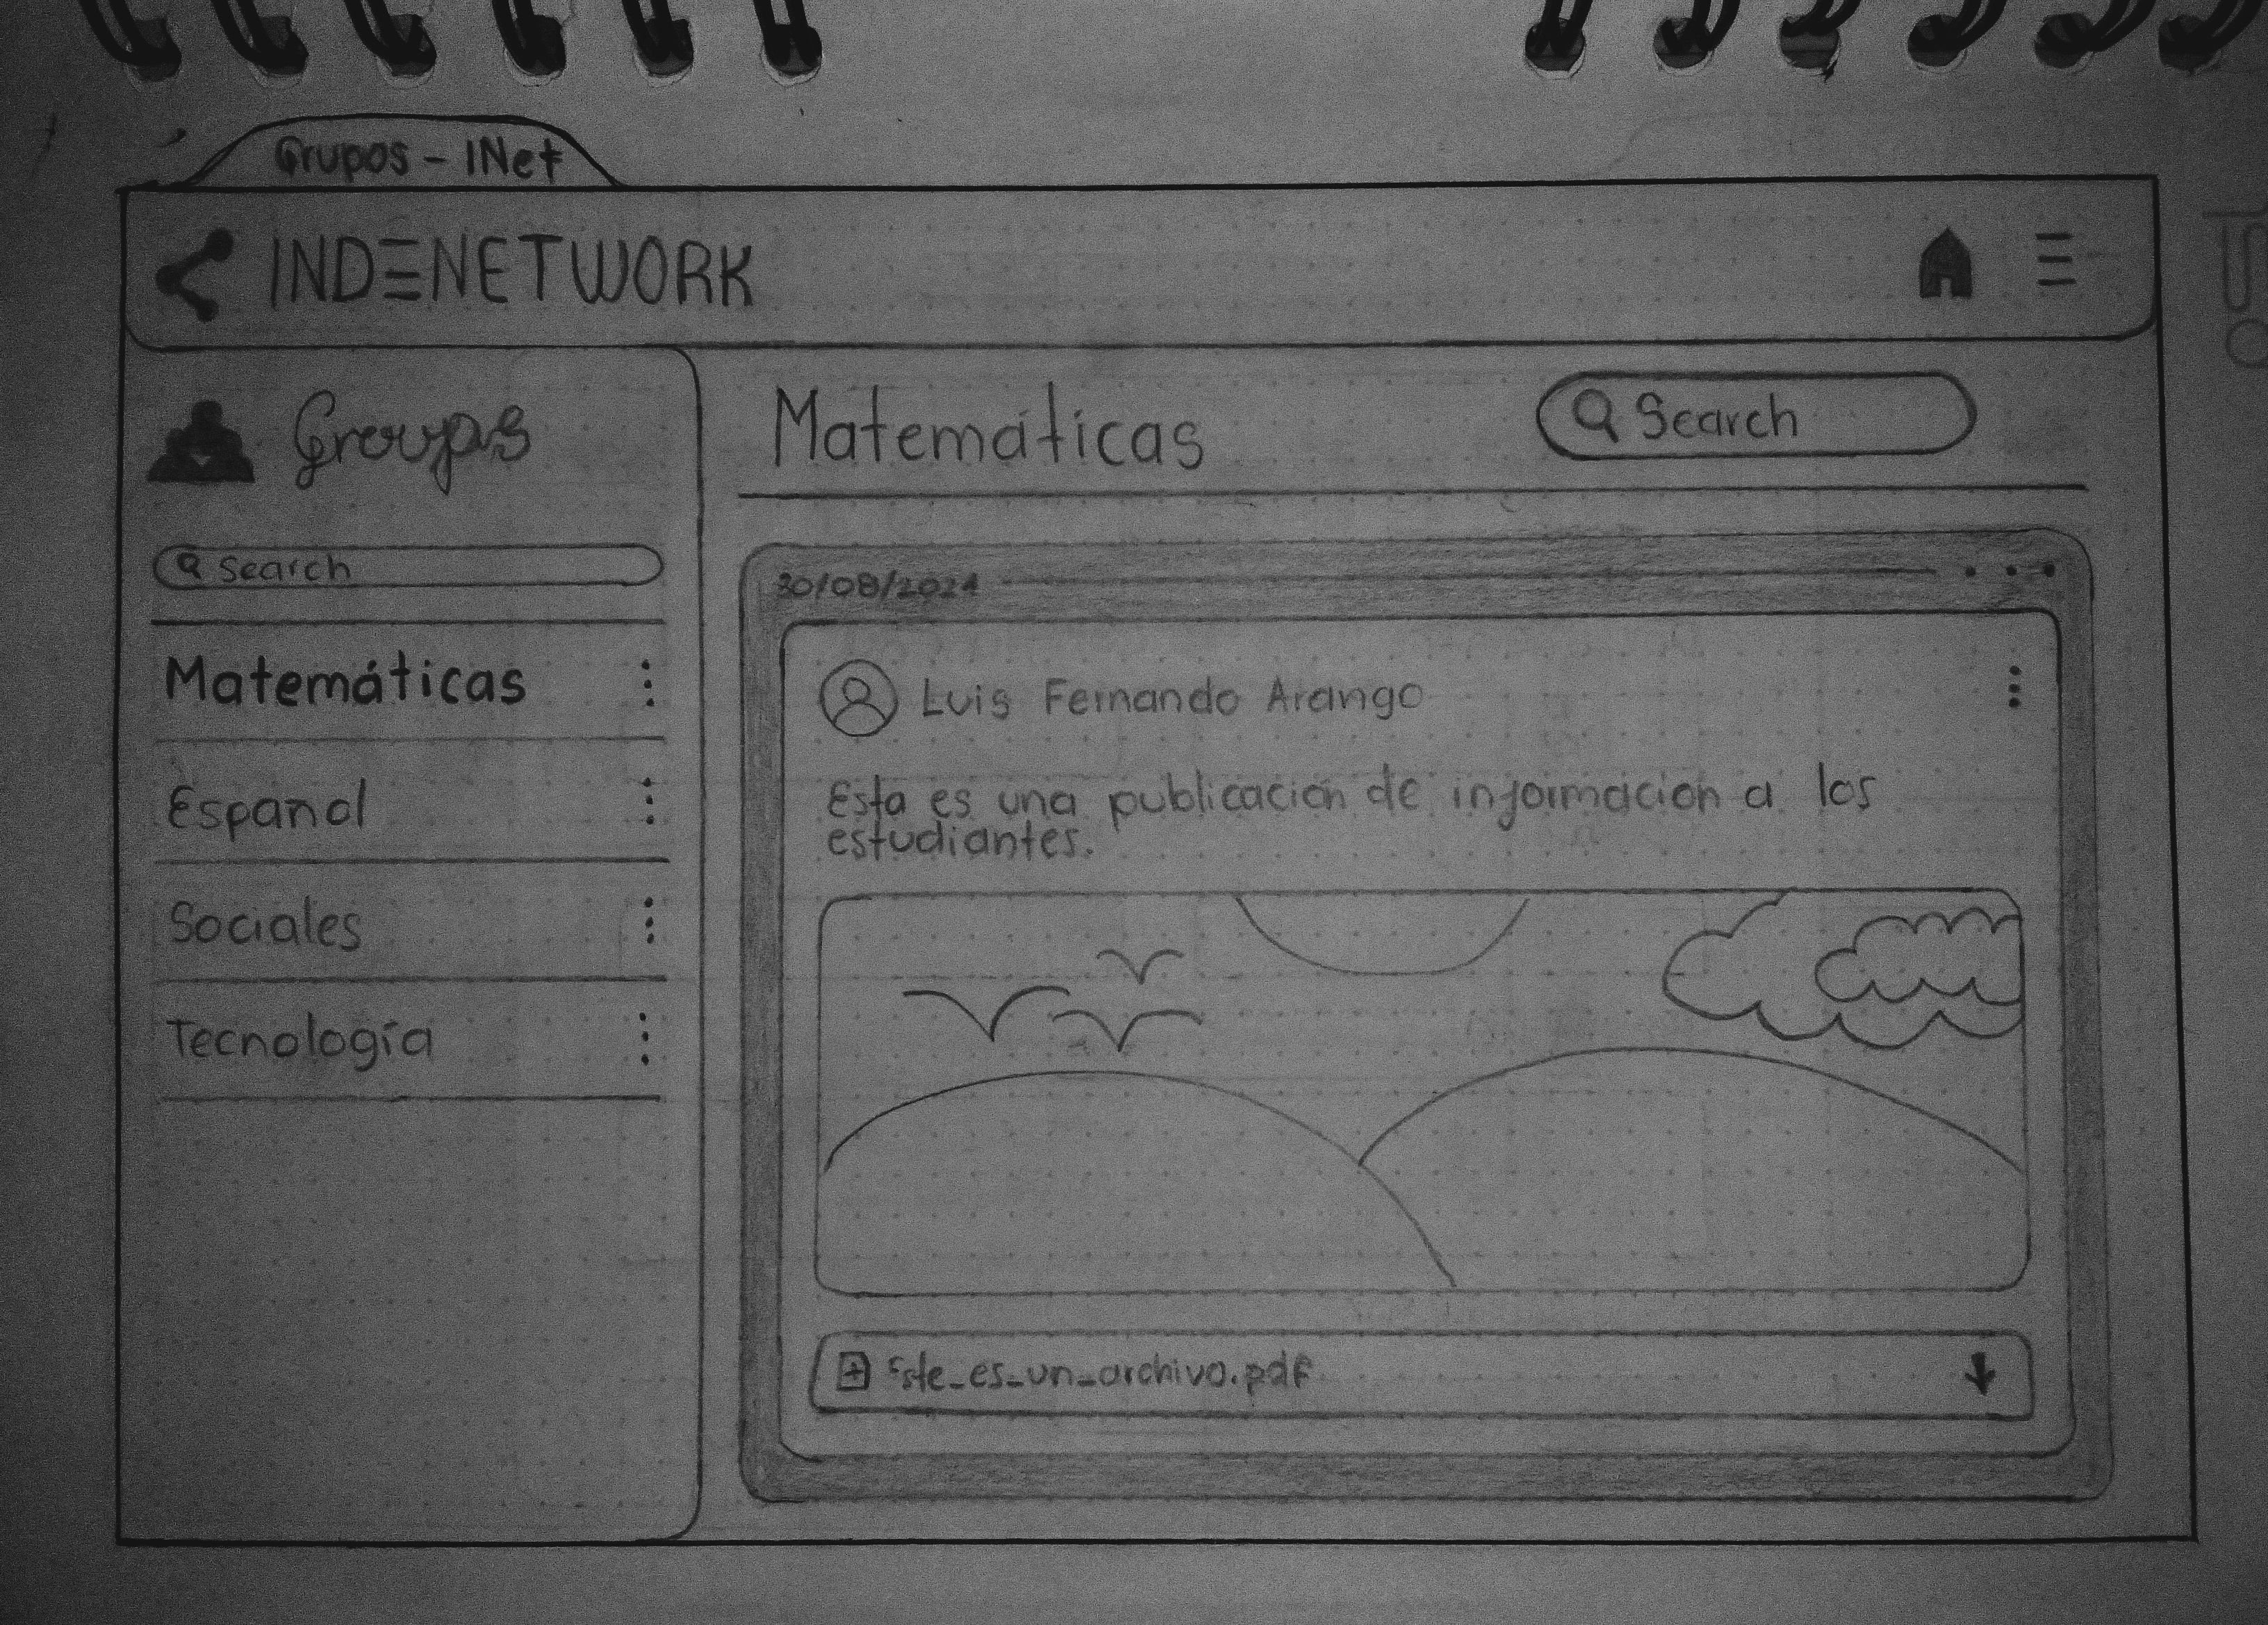 Grupos - INet
INDENETWORK
Groups
Search
Matemáticas
Español
Sociales
Tecnología
Matemáticas
Search
30/08/2024
Luis Fernando Arango
Esta es una publicación de información a los
estudiantes.
Este_es_un_archivo.pdf